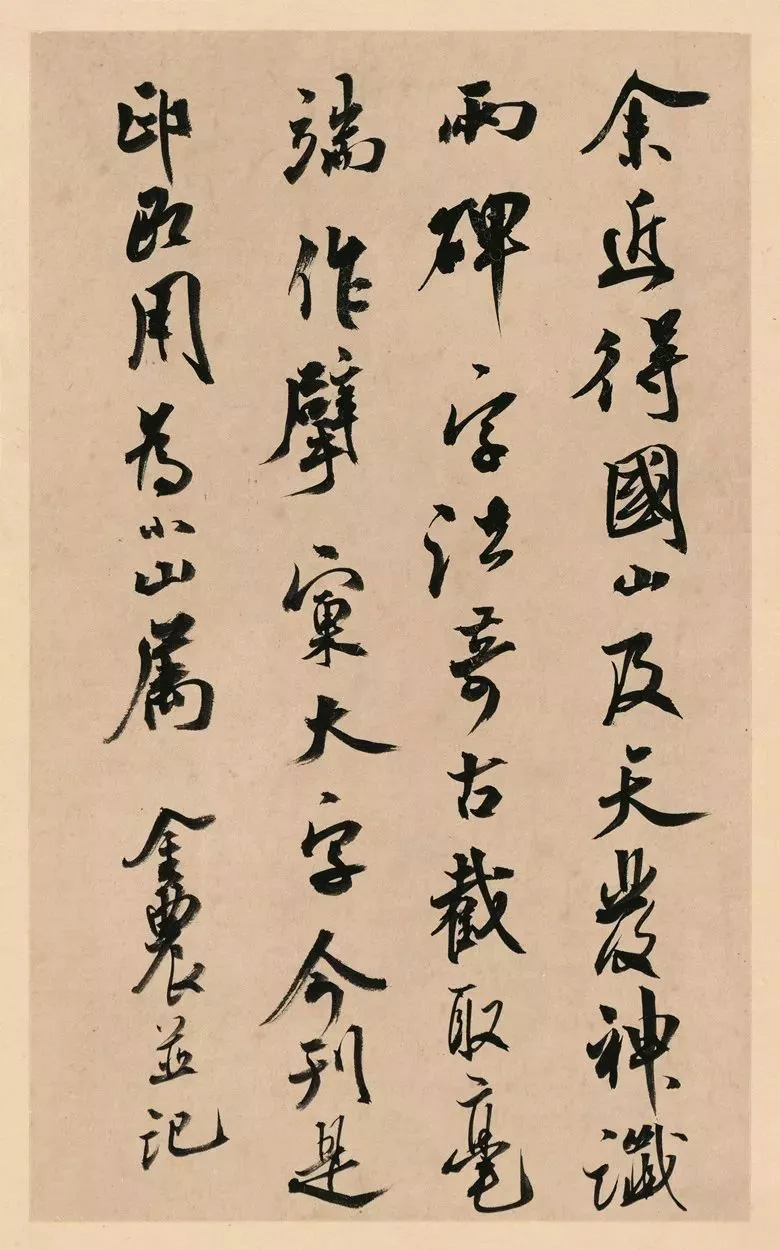 余近得國山及天發神讖
兩碑字法奇古截取毫
端作擘窠大字今刊是
印即用爲小山屬 金農並記